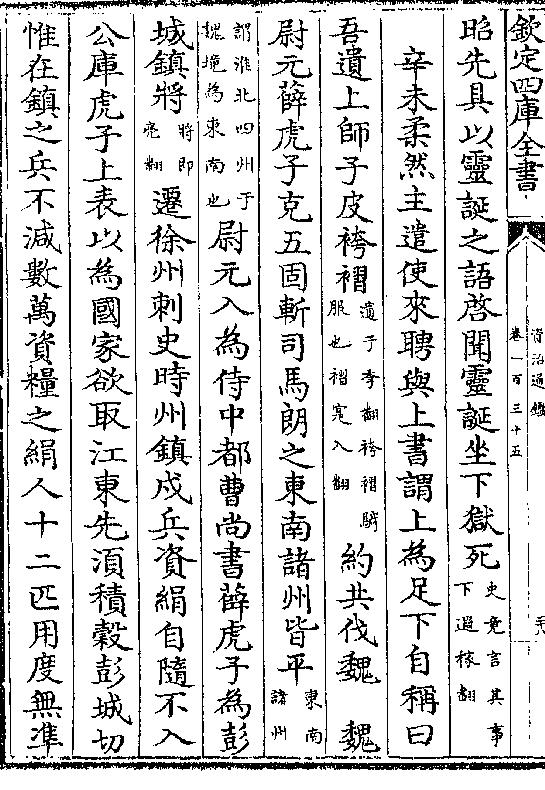 欽定四庫全書
資治通鑑
卷一百三十五
昭先具以靈誕之語啓聞靈誕坐下獄死史竟言其事下遐稼翻
辛未柔然主遣使來聘與上書謂上為足下自稱曰
吾遺上師子皮袴褶遺于季翻袴褶騎服也褶寔入翻約共伐魏　魏
尉元薛虎子克五固斬司馬朗之東南諸州皆平東南諸州
謂淮北四州于魏境為東南也尉元入為侍中都曹尚書薛虎子為彭
城鎮將將即亮翻遷徐州刺史時州鎮戍兵資絹自隨不入
公庫虎子上表以為國家欲取江東先湏積穀彭城切
惟在鎮之兵不減數萬資糧之絹人十二匹用度無準